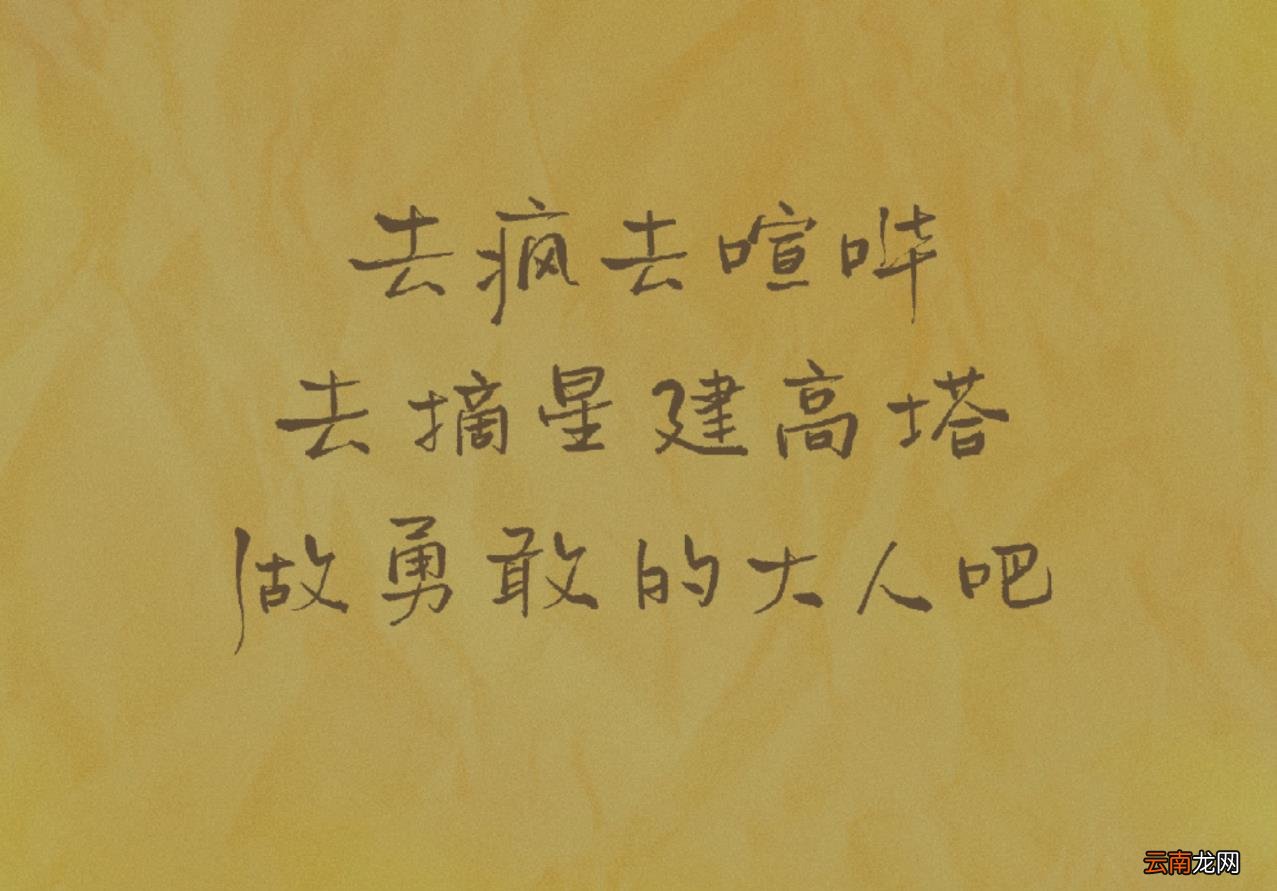 去疯去喧哗
去摘星建高塔
做勇敢的大人吧
云南龙网